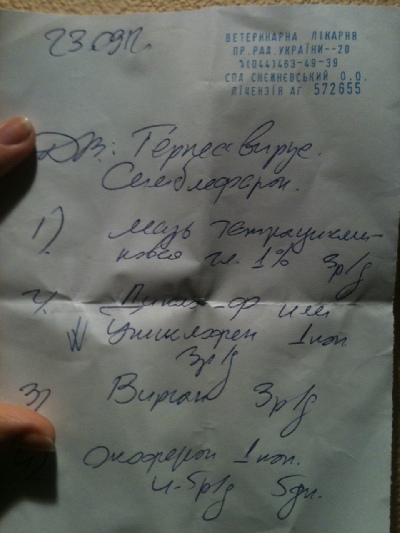 23.09
ВЕТЕРИНАРНА ЛІКАРНЯ
ПР.РАД.УКРАЇНИ--20
(044)463-49-39
СПД СНЄЖНЄВСЬКИЙ О.О.
ЛІЦЕНЗІЯ АГ 572655
Дз: Герпес вирус.
блефарои.
1) мазь тетрацикли-
новая гл. 1% 3р/д
2) -Ф или
Униклофен 1кап
3р/д
3) Вирган 3р/д
4) Окоферон 1кап.
4-5р/д 5дн.